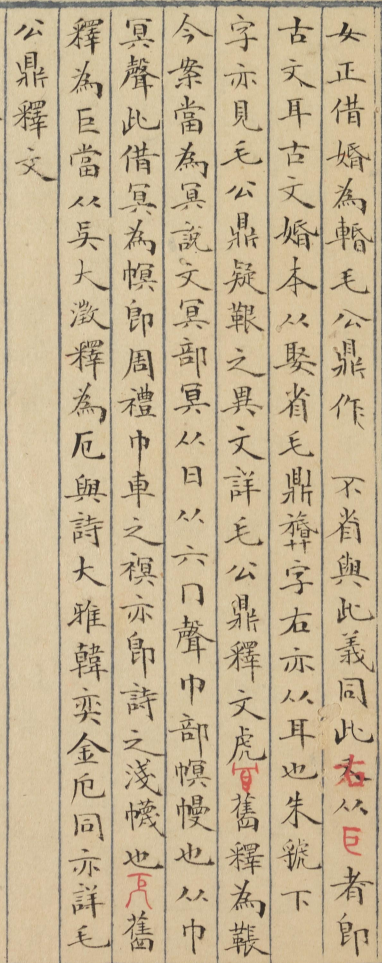 女正借婚為輴毛公鼎作 不省與此義同此右从巨者即
古文耳古文婚本从娶省毛鼎字右亦从耳也朱虢下
字亦見毛公鼎疑鞎之異文詳毛公鼎釋文虎冟舊釋為韔
今案當為冥說文冥部冥从日从六冂聲巾部幎幔也从巾
冥聲此借冥為幎即周禮巾車之𧜀亦即詩之淺幭也舊
釋為巨當从吳大澂釋為厄與詩大雅韓奕金厄同亦詳毛
公鼎釋文